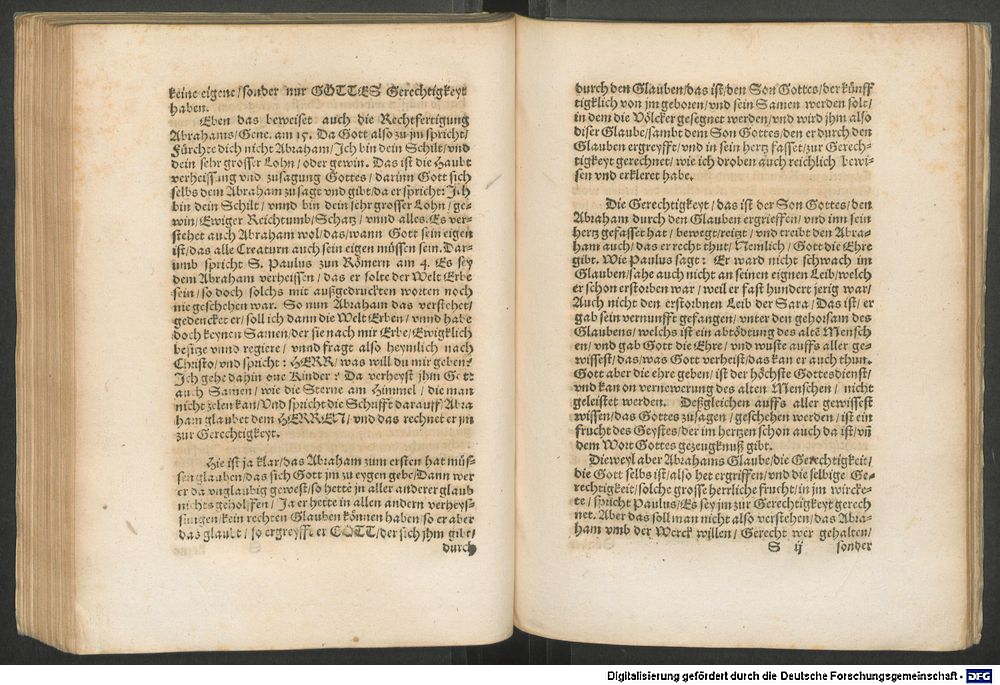 keine eigene/sonder nur GOTTES Gerechtigkeyt
haben.
Eben das beweiset auch die Rechtfertigung
Abrahams/Gene. am 15. Da Gott also zu jm spricht/
Fürchte dich nicht Abraham/Ich bin dein Schilt/vnd
dein sehr grosser Lohn/oder gewin. Das ist die Haubt
verheissung vnd zusagung Gottes/darinn Gott sich
selbs dem Abraham zusagt vnd gibt/da er spricht: Ich
bin dein Schilt/vnnd bin dein sehr grosser Lohn/ge-
win/Ewiger Reichtumb/Schatz/vnnd alles. Es ver-
stehet auch Abraham wol/das/wann Gott sein eigen
ist/das alle Creaturn auch sein eigen müssen sein. Dar-
umb spricht S. Paulus zun Römern am 4. Es sey
dem Abraham verheissen/das er solte der Welt Erbe
sein/so doch solchs mit außgedruckten worten noch
nie geschehen war. So nun Abraham das verstehet/
gedencket er/soll ich dann die Welt Erben/vnnd habe
doch keynen Samen/der sie nach mir Erbe/Ewigklich
besitze vnnd regiere/vnnd fragt also heymlich nach
Christo/vnd spricht: HERR/was will du mir geben?
Ich gehe dahin one Kinder? Da verheyst jhm Gott
auch Samen/wie die Sterne am Himmel/die man
nicht zelen kan/Vnd spricht die Schrifft darauff/Abra
ham glaubet dem HERREN/vnd das rechnet er jm
zur Gerechtigkeyt.
Hie ist ja klar/das Abraham zum ersten hat müs-
sen glauben/das sich Gott jm zu eygen gebe/Dann wer
er da vnglaubig gewest/so hette jn aller anderer glaub
nichts geholffen/Ja er hette in allen andern verheys-
sungen/kein rechten Glauben können haben/so er aber
das glaubt/so ergreyfft er GOTT/der sich jhm gibt/
durch
durch den Glauben/das ist/den Son Gottes/der künff
tigklich von jm geboren/vnd sein Samen werden solt/
in dem die Völcker gesegnet werden/vnd wird jhm also
diser Glaube/sambt dem Son Gottes/den er durch den
Glauben ergreyfft/vnd in sein hertz fasset/zur Gerech-
tigkeyt gerechnet/wie ich droben auch reichlich bewi-
sen vnd erkleret habe.
Die Gerechtigkeyt/das ist der Son Gottes/den
Abraham durch den Glauben ergrieffen/vnd inn sein
hertz gefasset hat/bewegt/reitzt/vnd treibt den Abra-
ham auch/das er recht thut/Nemlich/Gott die Ehre
gibt. Wie Paulus sagt: Er ward nicht schwach im
Glauben/sahe auch nicht an seinen eignen Leib/welch
er schon erstorben war/weil er fast hundert jerig war/
Auch nicht den erstorbnen Leib der Sara/Das ist/er
gab sein vernunfft gefangen/vnter den gehorsam des
Glaubens/welchs ist ein abtödtung des altē Mensch
en/vnd gab Gott die Ehre/vnd wuste auffs aller ge-
wissest/das/was Gott verheist/das kan er auch thun.
Gott aber die ehre geben/ist der höchste Gottesdienst/
vnd kan on vernewerung des alten Menschen/nicht
geleistet werden. Deßgleichen auffs aller gewissest
wissen/das Gottes zusagen/geschehen werden/ist ein
frucht des Geystes/der im hertzen schon auch da ist/vn̄
dem Wort Gottes gezeugknuß gibt.
Dieweyl aber Abrahams Glaube/die Gerechtigkeit/
die Gott selbs ist/also het ergriffen/vnd die selbige Ge-
rechtigkeit/solche grosse herrliche frucht/in jm wircke-
te/spricht Paulus/Es sey jm zur Gerechtigkeyt gerech
net. Aber das soll man nicht also verstehen/das Abra-
ham vmb der Werck willen/Gerecht wer gehalten/
S ij sonder
Digitalisierung gefördert durch die Deutsche Forschungsgemeinschaft - DFG